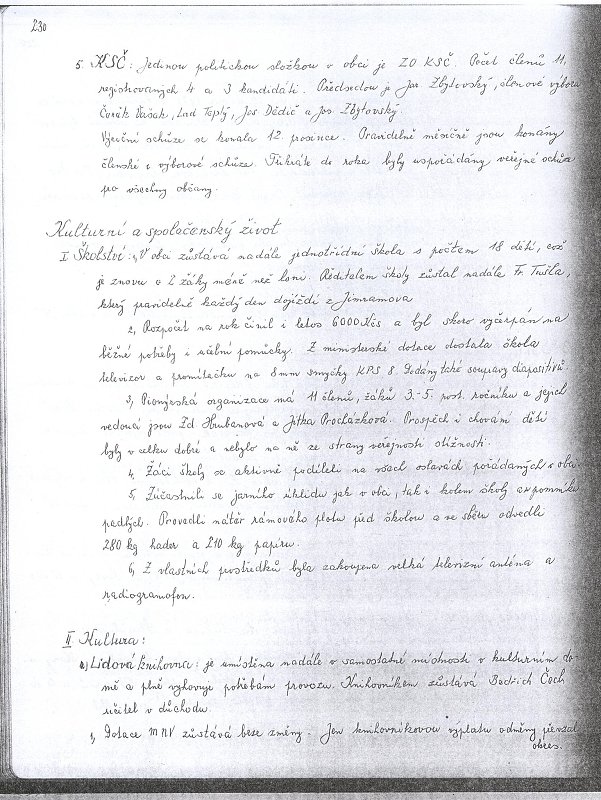 230
5. KSČ: Jedinou politickou složkou v obci je ZO KSČ. Počet členů 11,
registrovaných 4 a 3 kandidáti. Předsedou je Jar. Zbytovský, členové výboru
Čeněk Vašak, Lad Teplý, Jos Dědič a Jos Zbytovský.
Výroční schůze se konala 12. prosince. Pravidelně měsíčně jsou konány
členské i výborové schůze. Třikráte do roka byly uspořádány veřejné schůze
pro všechny občany.
Kulturní a společenský život
I Školství: 1, V obci zůstává nadále jednotřídní škola s počtem 18 dětí, což
je znovu o 2 žáky méně než loni. Ředitelem školy zůstal nadále Fr. Tušla,
který pravidelně každý den dojíždí z Jimramova
2, Rozpočet na rok činil i letos 6000 Kčs a byl skoro vyčerpán na
běžné potřeby i učební pomůcky. Z ministerské dotace dostala škola
televizor a promítačku na 8mm smyčky KPS 8. Dodány také soupravy diapositivů
3, Pionýrská organizace má 11 členů, žáků 3.-5. post. ročníku a jejich
vedoucí jsou Zd Hrubanová a Jitka Procházková. Prospěch i chování dětí
byly v celku dobré a nebylo na ně ze strany veřejnosti stížnosti.
4. Žáci školy se aktivně podíleli na všech oslavách pořádaných v obci
5. Zúčastnili se jarního úklidu jak v obci, tak i kolem školy a u pomníku
padlých. Provedli nátěr rámového plotu před školou a ve sběru odvedli
280 kg hader a 210 kg papíru.
6, Z vlastních prostředků byla zakoupena velká televizní anténa a
radiogramofon.
II Kultura:
a) Lidová knihovna: je umístěna nadále v samostatné místnosti v kulturním do
mě a plně vyhovuje potřebám provozu. Knihovníkem zůstává Bedřich Čech
učitel v důchodu.
1, Dotace MNV zůstává beze změny. Jen knihovníkovou výplatu odměny převzal
okres.